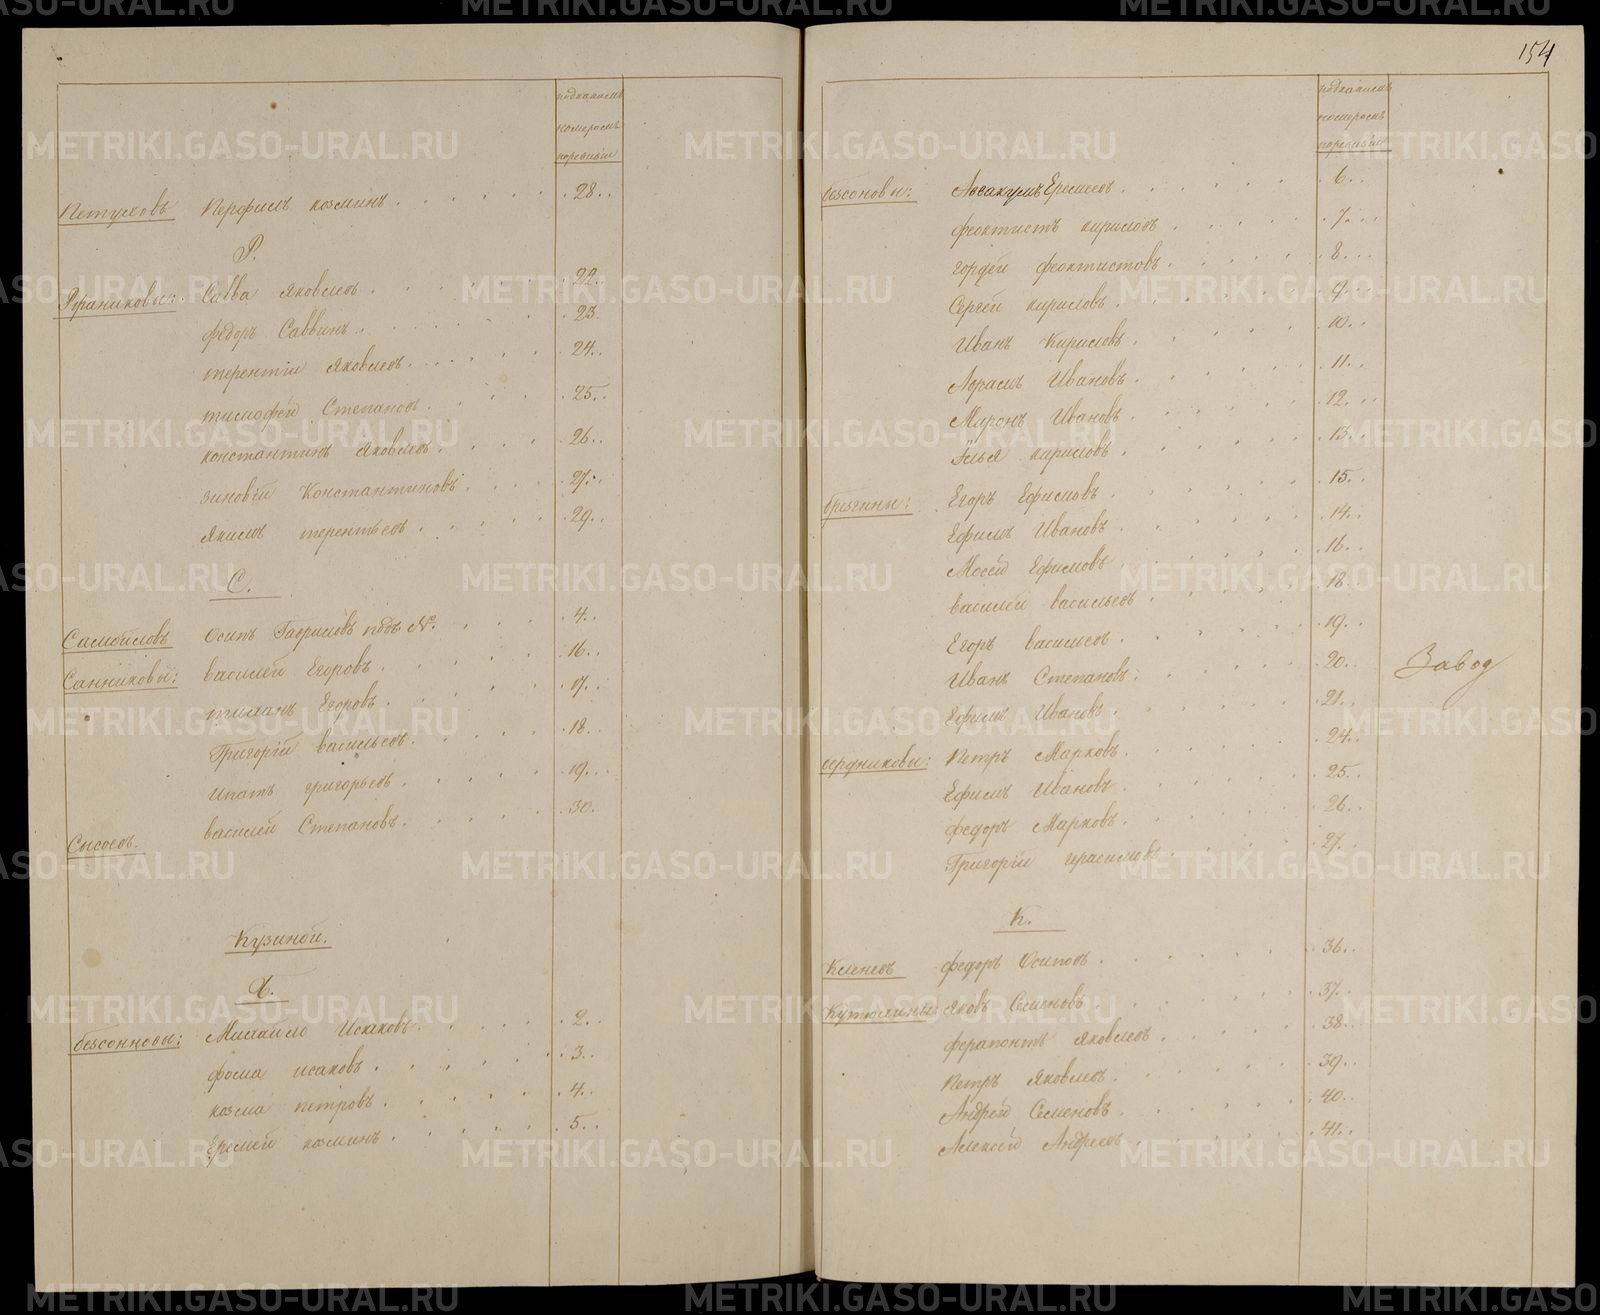 подкакимъ
номеромъ
поревизiи
Петуховъ Перфилъ козминъ 28
Р.
Савва Яковлевъ 22
федоръ Саввинъ 23
терентiй Яковлевъ 24
тимофей Степановъ 25
константинъ Яковлевъ 26
зиновiй Константиновъ 27
Якимъ терентьевъ 29
С.
Самойловъ Осипъ Гавриловъ подъ № 4
Санниковы: василей Егоровъ 16
Егоровъ 17
Григорiй васильевъ 18
ипатъ григорьевъ 19
Сысоевъ василей Степановъ 30
Кузиной.
Б.
безсонновы: Михайло Исаковъ 2
фома исаковъ 3
козма петровъ 4
Еремей козминъ 5
154
подкакимъ
номеромъ
поревизiи
безсоновы: Аввакумъ Еремеевъ 6
феоктистъ кириловъ 7
гордей феоктистовъ 8
Сергей кириловъ 9
Иванъ Кириловъ 10
Абрамъ Ивановъ 11
Миронъ Ивановъ 12
Илья кириловъ 13
Егоръ Ефимовъ 15
Ефимъ Ивановъ 14
Мосей Ефимовъ 16
василей васильевъ 18
Егоръ васильевъ 19
Иванъ Степановъ 20 Завод
Ефимъ Ивановъ 21
бердниковы: Петръ Марковъ 24
Ефимъ Ивановъ 25
федоръ Марковъ 26
Григорiй герасимовъ 27
К.
Кленовъ федоръ Осиповъ 36
Кутюхины: яковъ Семеновъ 37
ферапонтъ яковлевъ 38
Петръ яковлевъ 39
Андрей Семеновъ 40
Алексей Андреевъ 41
METRIKI.GASO-URAL.RU